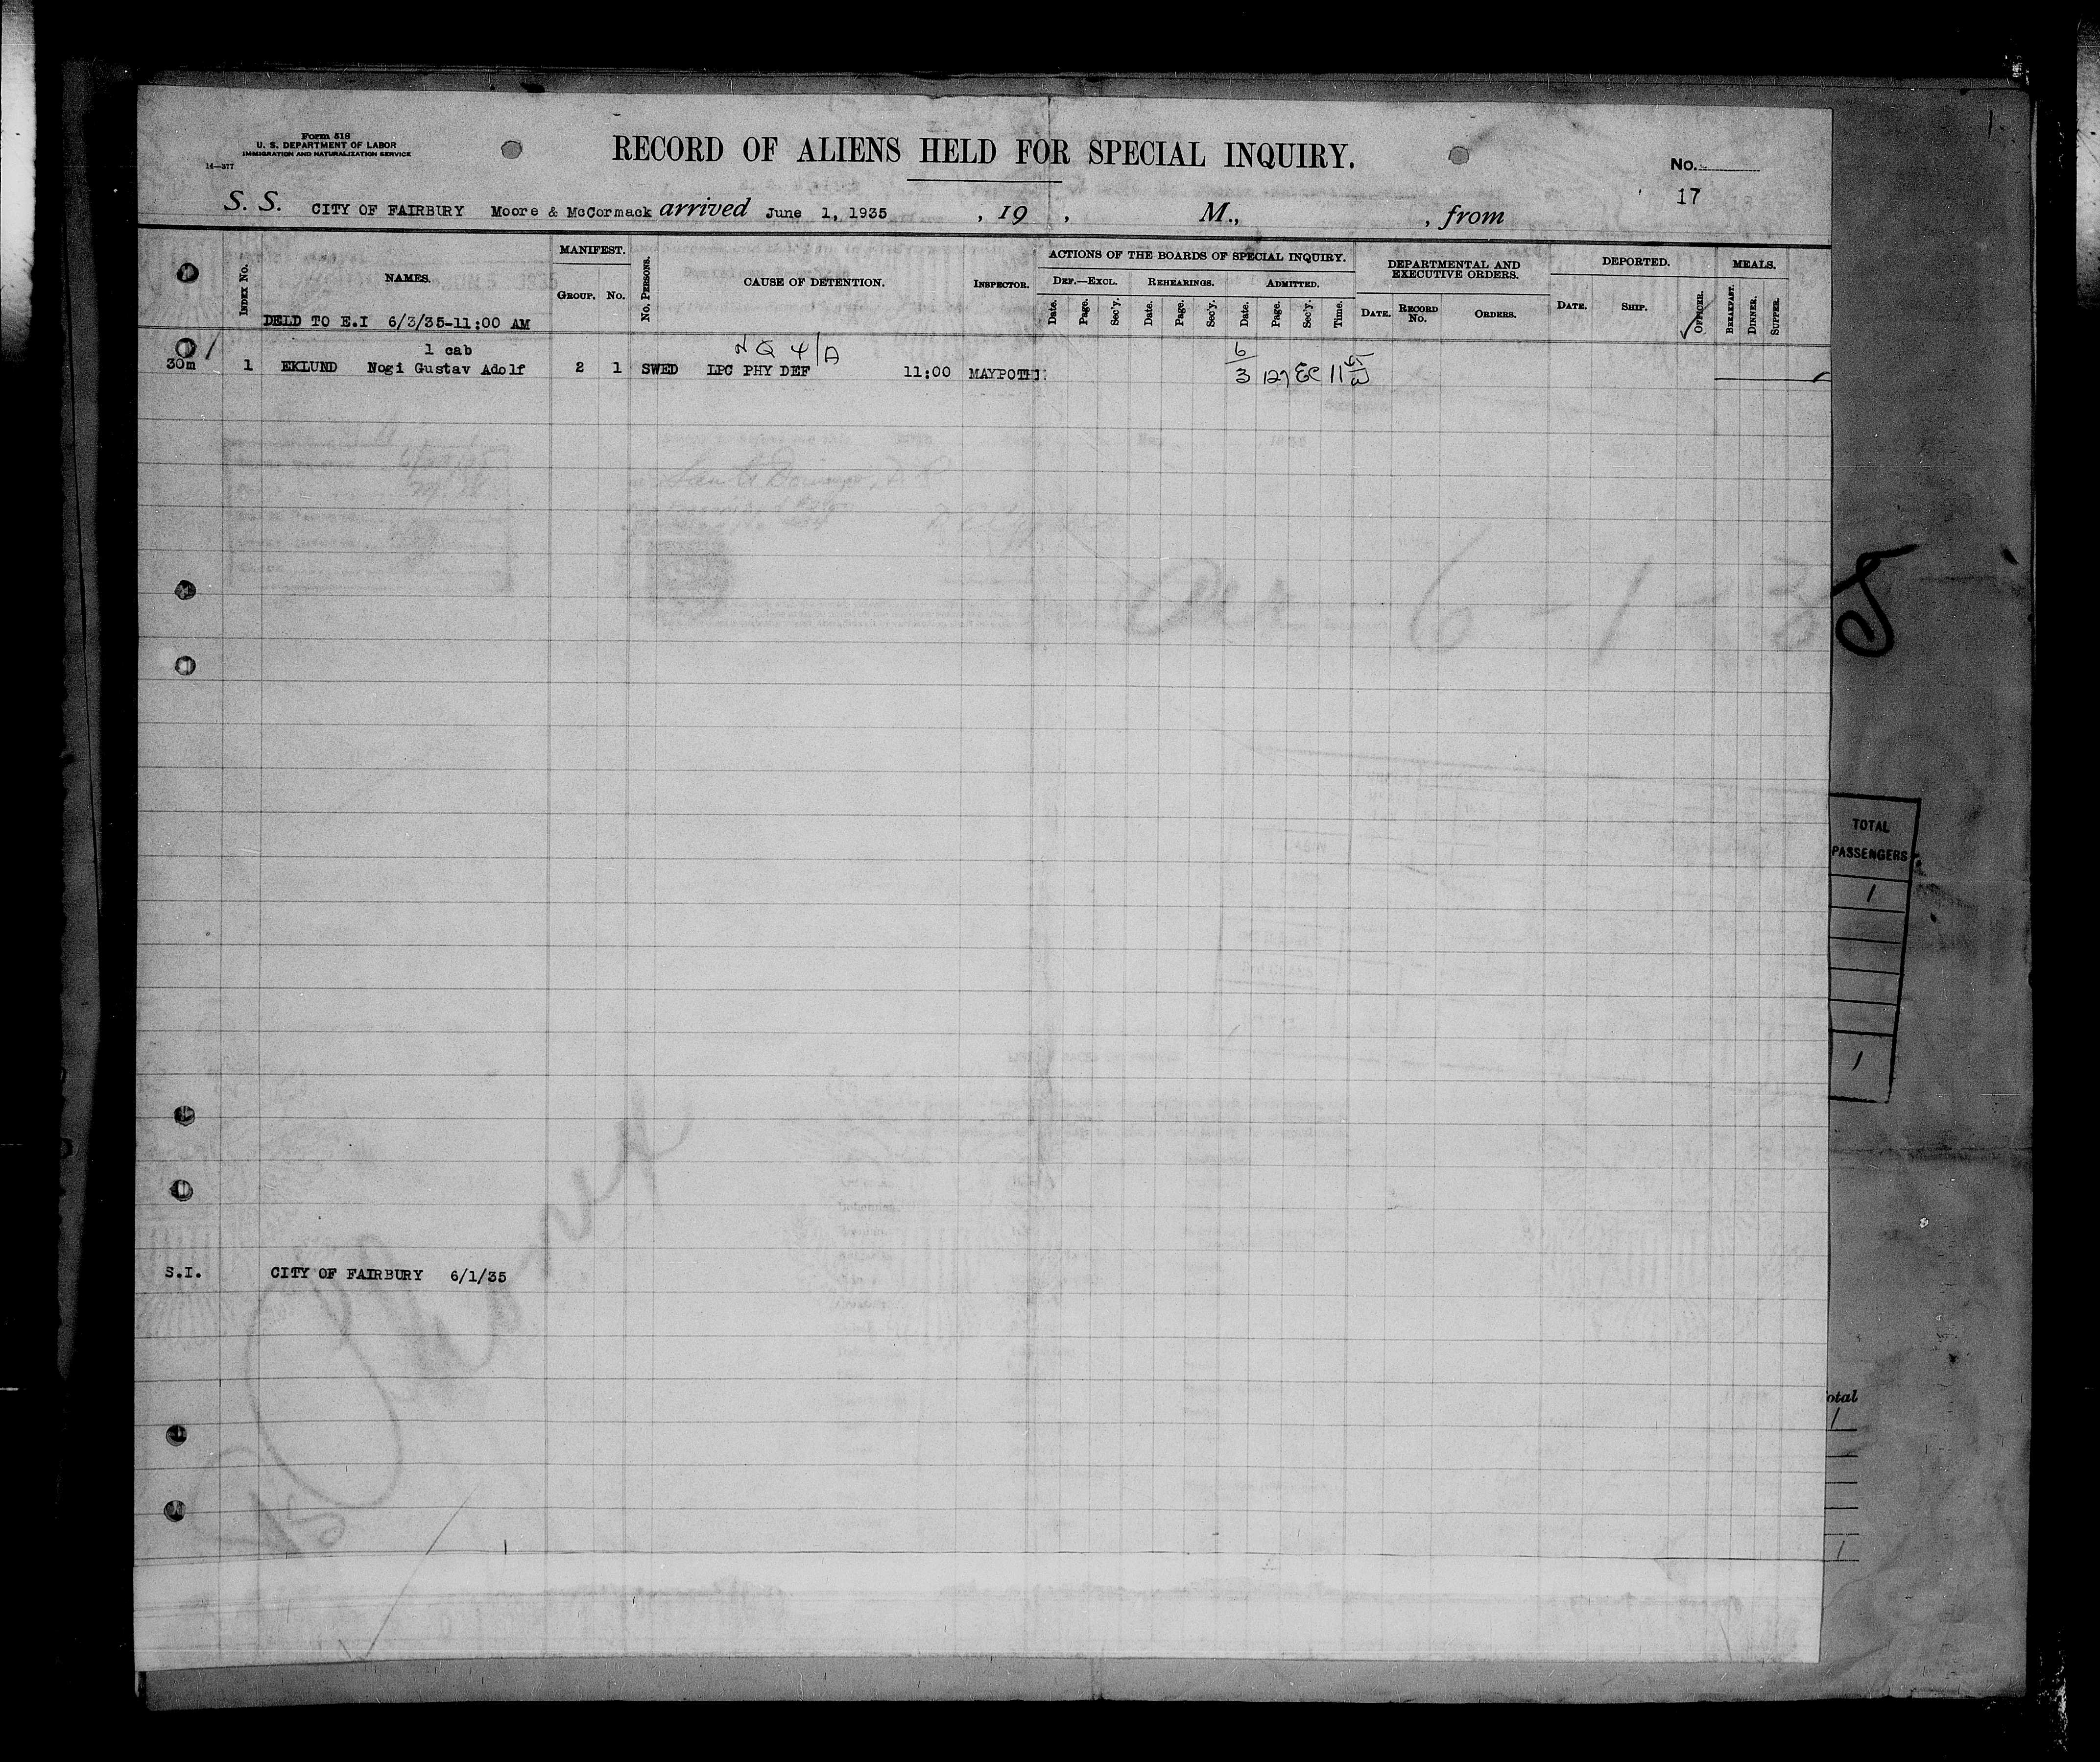 Form 518
U. S. DEPARTMENT OF LABOR
IMMIGRATION AND NATURALIZATION SERVICE
14—377
RECORD OF ALIENS HELD FOR SPECIAL INQUIRY.
No.
17
S. S. CITY OF FAIRBURY Moore & McCormack arrived June 1, 1935 , 19 , M., , from
INDEX No.
NAMES.
MANIFEST.
GROUP. No.
No. PERSONS.
CAUSE OF DETENTION.
INSPECTOR.
ACTIONS OF THE BOARDS OF SPECIAL INQUIRY.
DEF.—EXCL. REHEARINGS. ADMITTED.
Date. Page. Sec'y. Date. Page. Sec'y. Date. Page. Sec'y. Time.
DEPARTMENTAL AND
EXECUTIVE ORDERS.
DATE. RECORD No. ORDERS.
DEPORTED.
DATE. SHIP. OFFICER.
MEALS.
BREAKFAST. DINNER. SUPPER.
DELD TO E.I 6/3/35-11:00 AM
1 cab
30m 1 EKLUND Nogi Gustav Adolf 2 1 SWED LPC PHY DEF 11:00 6/3 127 EC
S.I. CITY OF FAIRBURY 6/1/35
TOTAL
PASSENGERS
1
1
otal
1
1